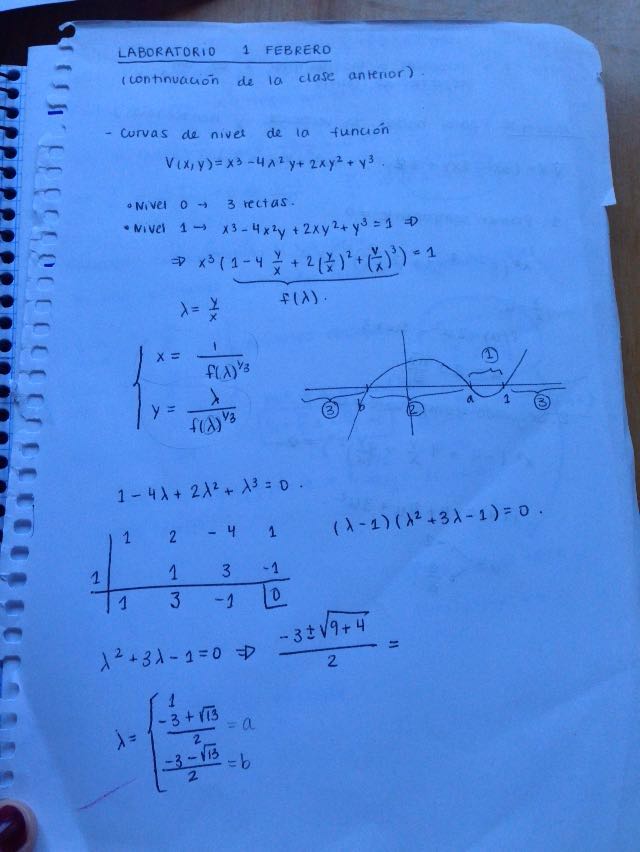 LABORATORIO 1 FEBRERO
(continuación de la clase anterior).
- Curvas de nivel de la función
V(x,y) = x³ - 4x²y + 2xy² + y³.
• Nivel 0 → 3 rectas.
• Nivel 1 → x³ - 4x²y + 2xy² + y³ = 1 ⇒
⇒ x³ (1 - 4 y/x + 2(y/x)² + (y/x)³) = 1
f(λ).
λ = y/x
x = 1/f(λ)^1/3
y = λ/f(λ)^1/3
①
③ b ② a 1 ③
1 - 4λ + 2λ² + λ³ = 0.
1 2 -4 1
1 1 3 -1
1 3 -1 0
(λ-1)(λ² + 3λ - 1) = 0.
λ² + 3λ - 1 = 0 ⇒ (-3 ± √(9+4))/2 =
λ = { 1
(-3 + √13)/2 = a
(-3 - √13)/2 = b